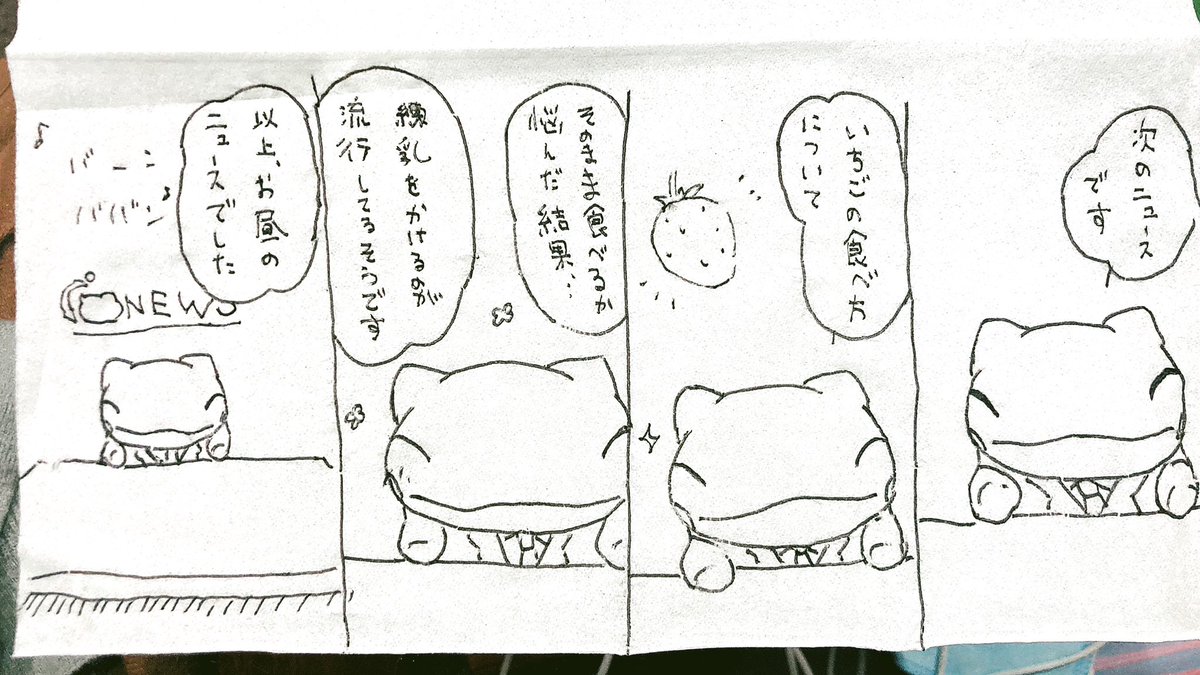 次のニュース
です
いちごの食べ方
について
そのまま食べるか
悩んだ結果…
練乳をかけるのが
流行してるそうです
以上、お昼の
ニュースでした
バーン
ババン
NEWS